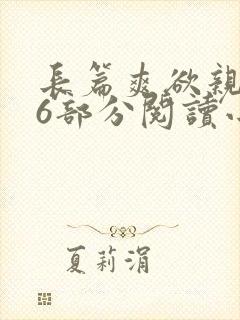 長篇爽欲親
6部分閱讀小
夏莉涓